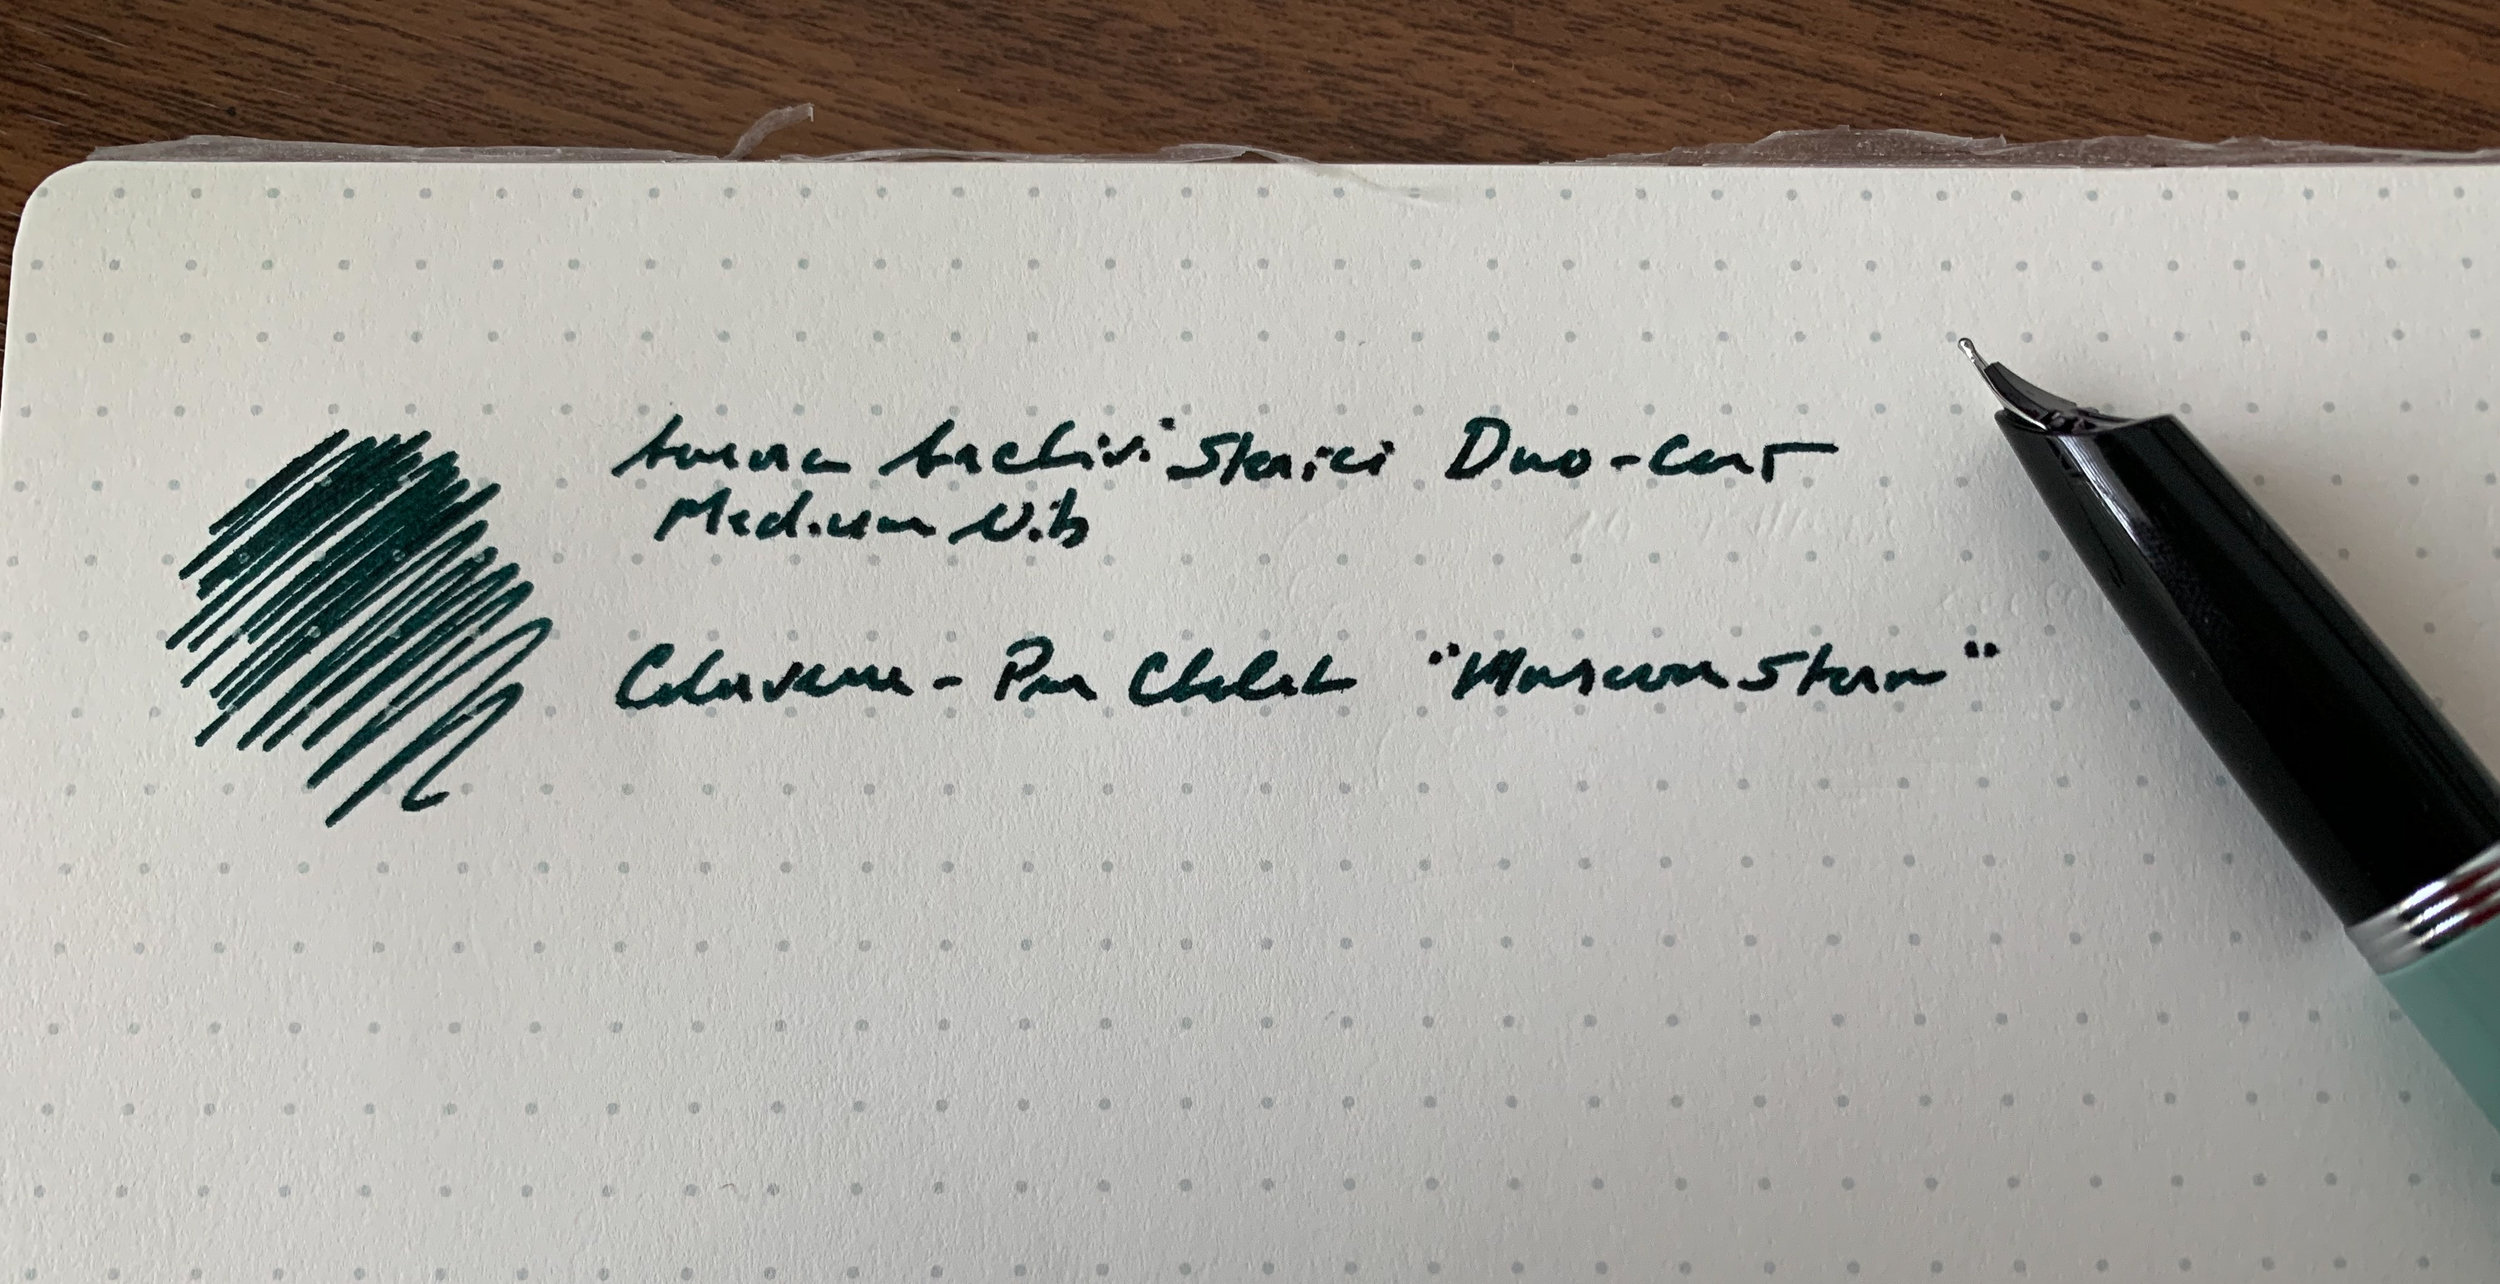 Aurora Archivi Storici Duo-Cart
Medium Nib
Colorverse - Pen Chalet "Monsoon Storm"